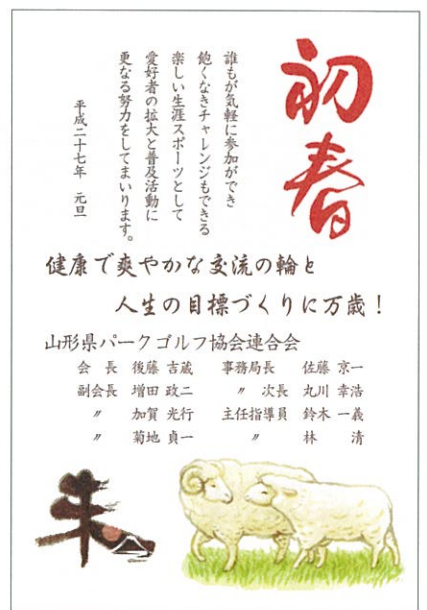 初春
誰もが気軽に参加ができ
飽くなきチャレンジもできる
楽しい生涯スポーツとして
愛好者の拡大と普及活動に
更なる努力をしてまいります。
平成二十七年 元旦
健康で爽やかな交流の輪と
人生の目標づくりに万歳！
山形県パークゴルフ協会連合会
会 長 後藤 吉蔵 事務局長 佐藤 京一
副会長 増田 政二 〃 次長 丸川 幸浩
〃 加賀 光行 主任指導員 鈴木 一義
〃 菊地 貞一 〃 林 清
未